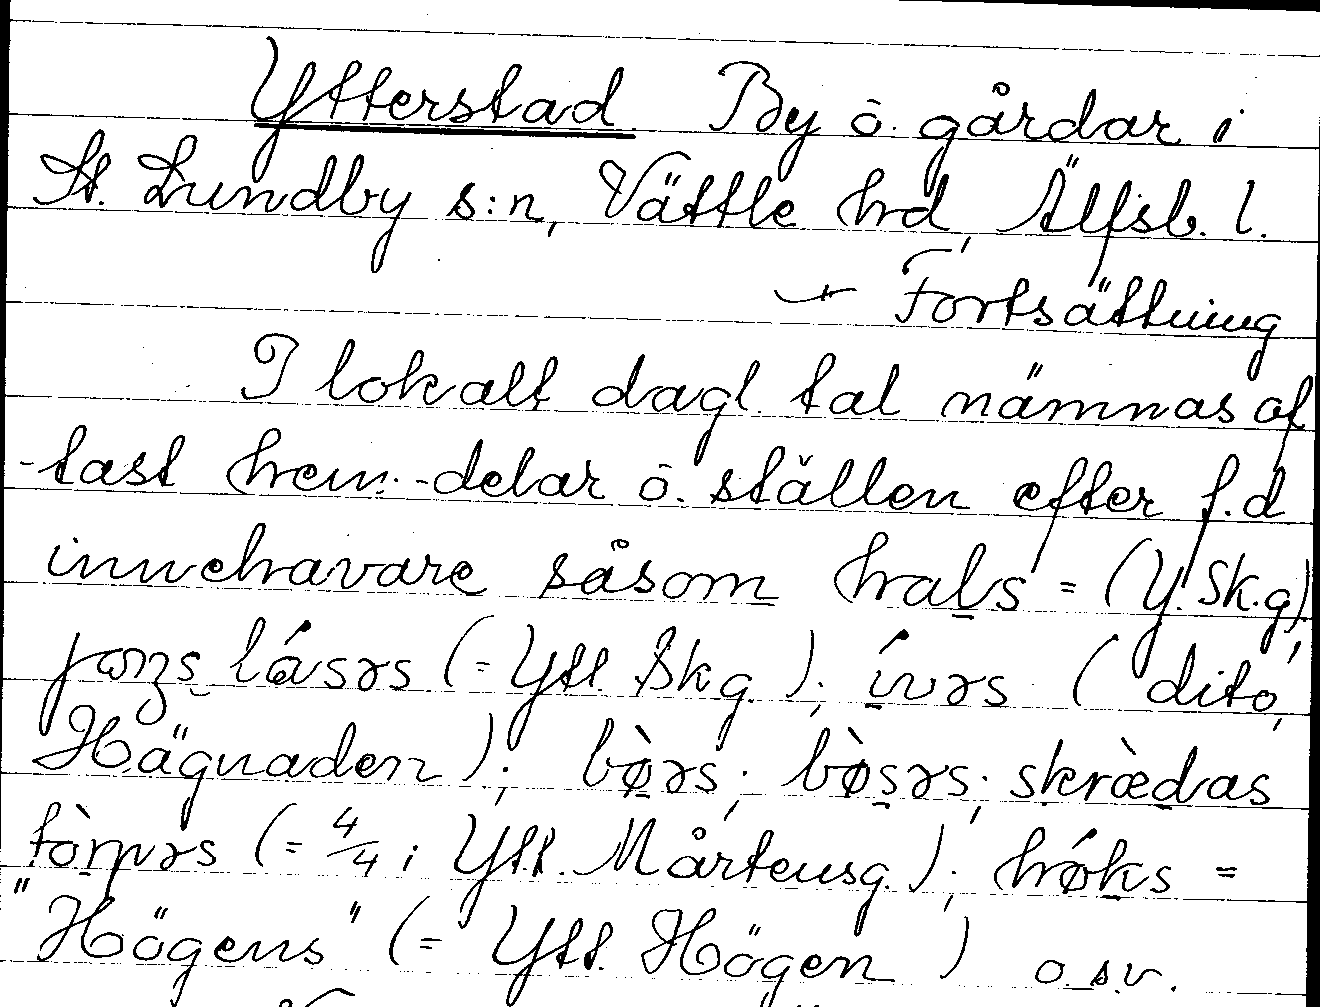 Ytterstad By ō. gårdar i
St. Lundby s:n, Vättle hrd, Älfsb. l.
Fortsättning
I lokalt dagl. tal nämnas of
-tast hem.-delar ō. ställen efter f.d
innehavare såsom hals = (Y. Sk.g),
lásərs (= Ytt. Skg.); ívərs (dito,
Hägnaden); bø̀rs; bø̀sərs; skræ̀dras
(= 4/4 i Ytt. Mårtensg.); hǿks =
"Högens" (= Ytt. Högen) o.s.v.